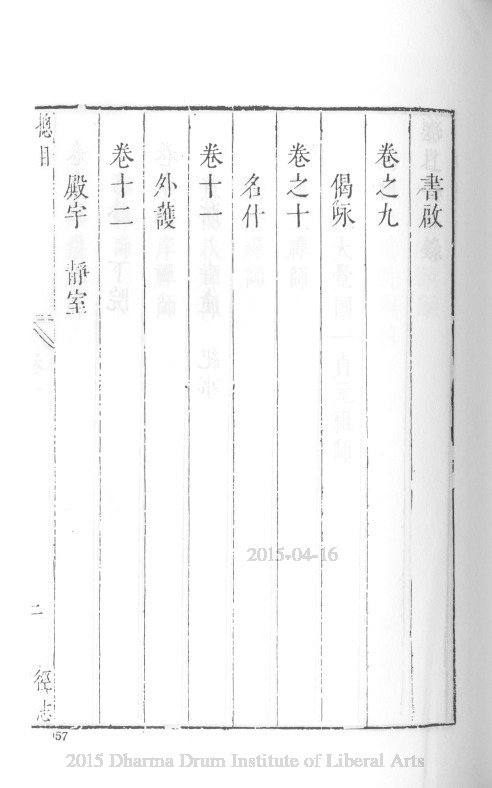 書啟
卷之九
偈咏
卷之十
名什
卷十一
外護
卷十二
殿宇　靜室
總目
二
徑志
057
2015-04-16
2015 Dharma Drum Institute of Liberal Arts